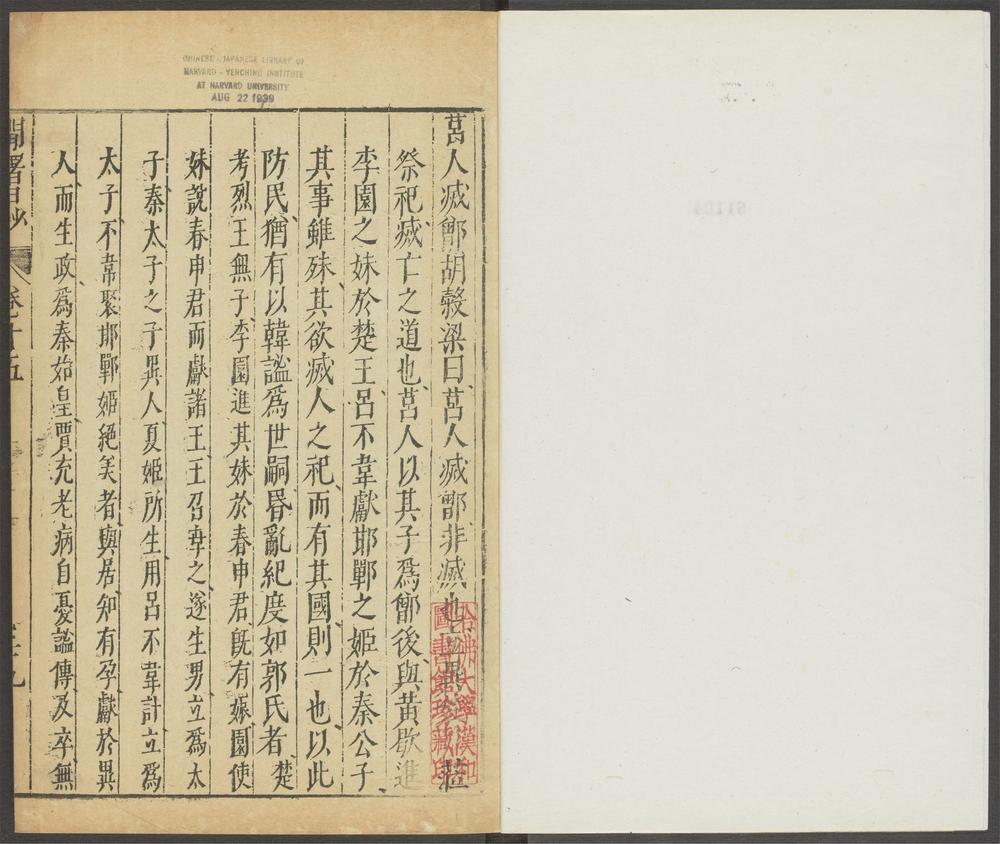 CHINESE - JAPANESE LIBRARY OF
HARVARD - YENCHING INSTITUTE
AT HARVARD UNIVERSITY
AUG 22 1939
莒人滅鄫胡榖梁曰莒人滅鄫非滅也 莊
祭祀滅亡之道也莒人以其子爲鄫後與黃歇進
李園之妹於楚王呂不韋獻邯鄲之姬於秦公子
其事雖殊其欲滅人之祀而有其國則一也以此
防民猶有以韓謐爲世嗣昬亂紀度如郭氏者楚
考烈王無子李園進其妹於春申君旣有娠園使
妹說春申君而獻諸王王召幸之遂生男立爲太
子秦太子之子異人夏姬所生用呂不韋計立爲
太子不韋娶邯鄲姬絕美者與居知有孕獻於異
人而生政爲秦始皇賈充老病自憂謚傳及卒無
閒署日抄 卷十五
哈佛大學漢和
圖書館珍藏印
61104